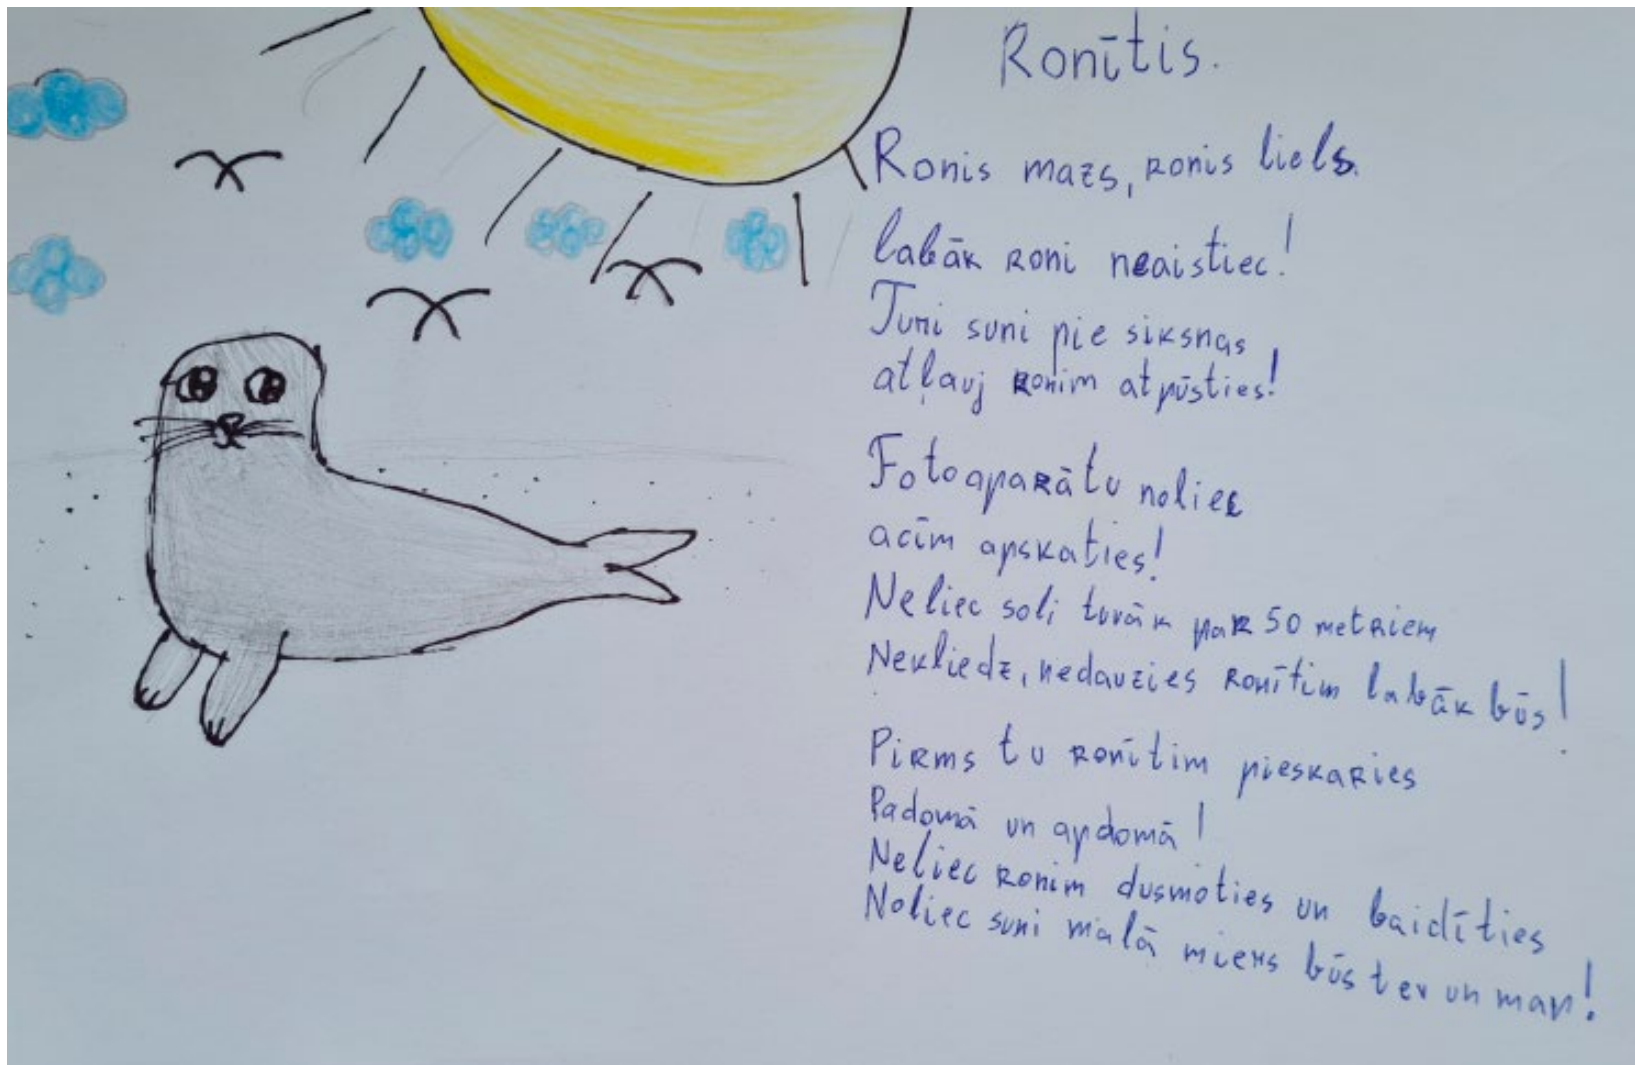 Ronītis.
Ronis mazs, ronis liels.
labāk roni neaistiec!
Turi suni pie siksnas
atļauj ronim atpūsties!
Fotoaparātu noliec
acīm apskaties!
Neliec soli tuvāk par 50 metriem
Nekliedz, nedauzies ronītim labāk būs!
Pirms tu ronītim pieskaries
Padomā un apdomā!
Neliec ronim dusmoties un baidīties
Noliec suni malā miers būs tev un man!